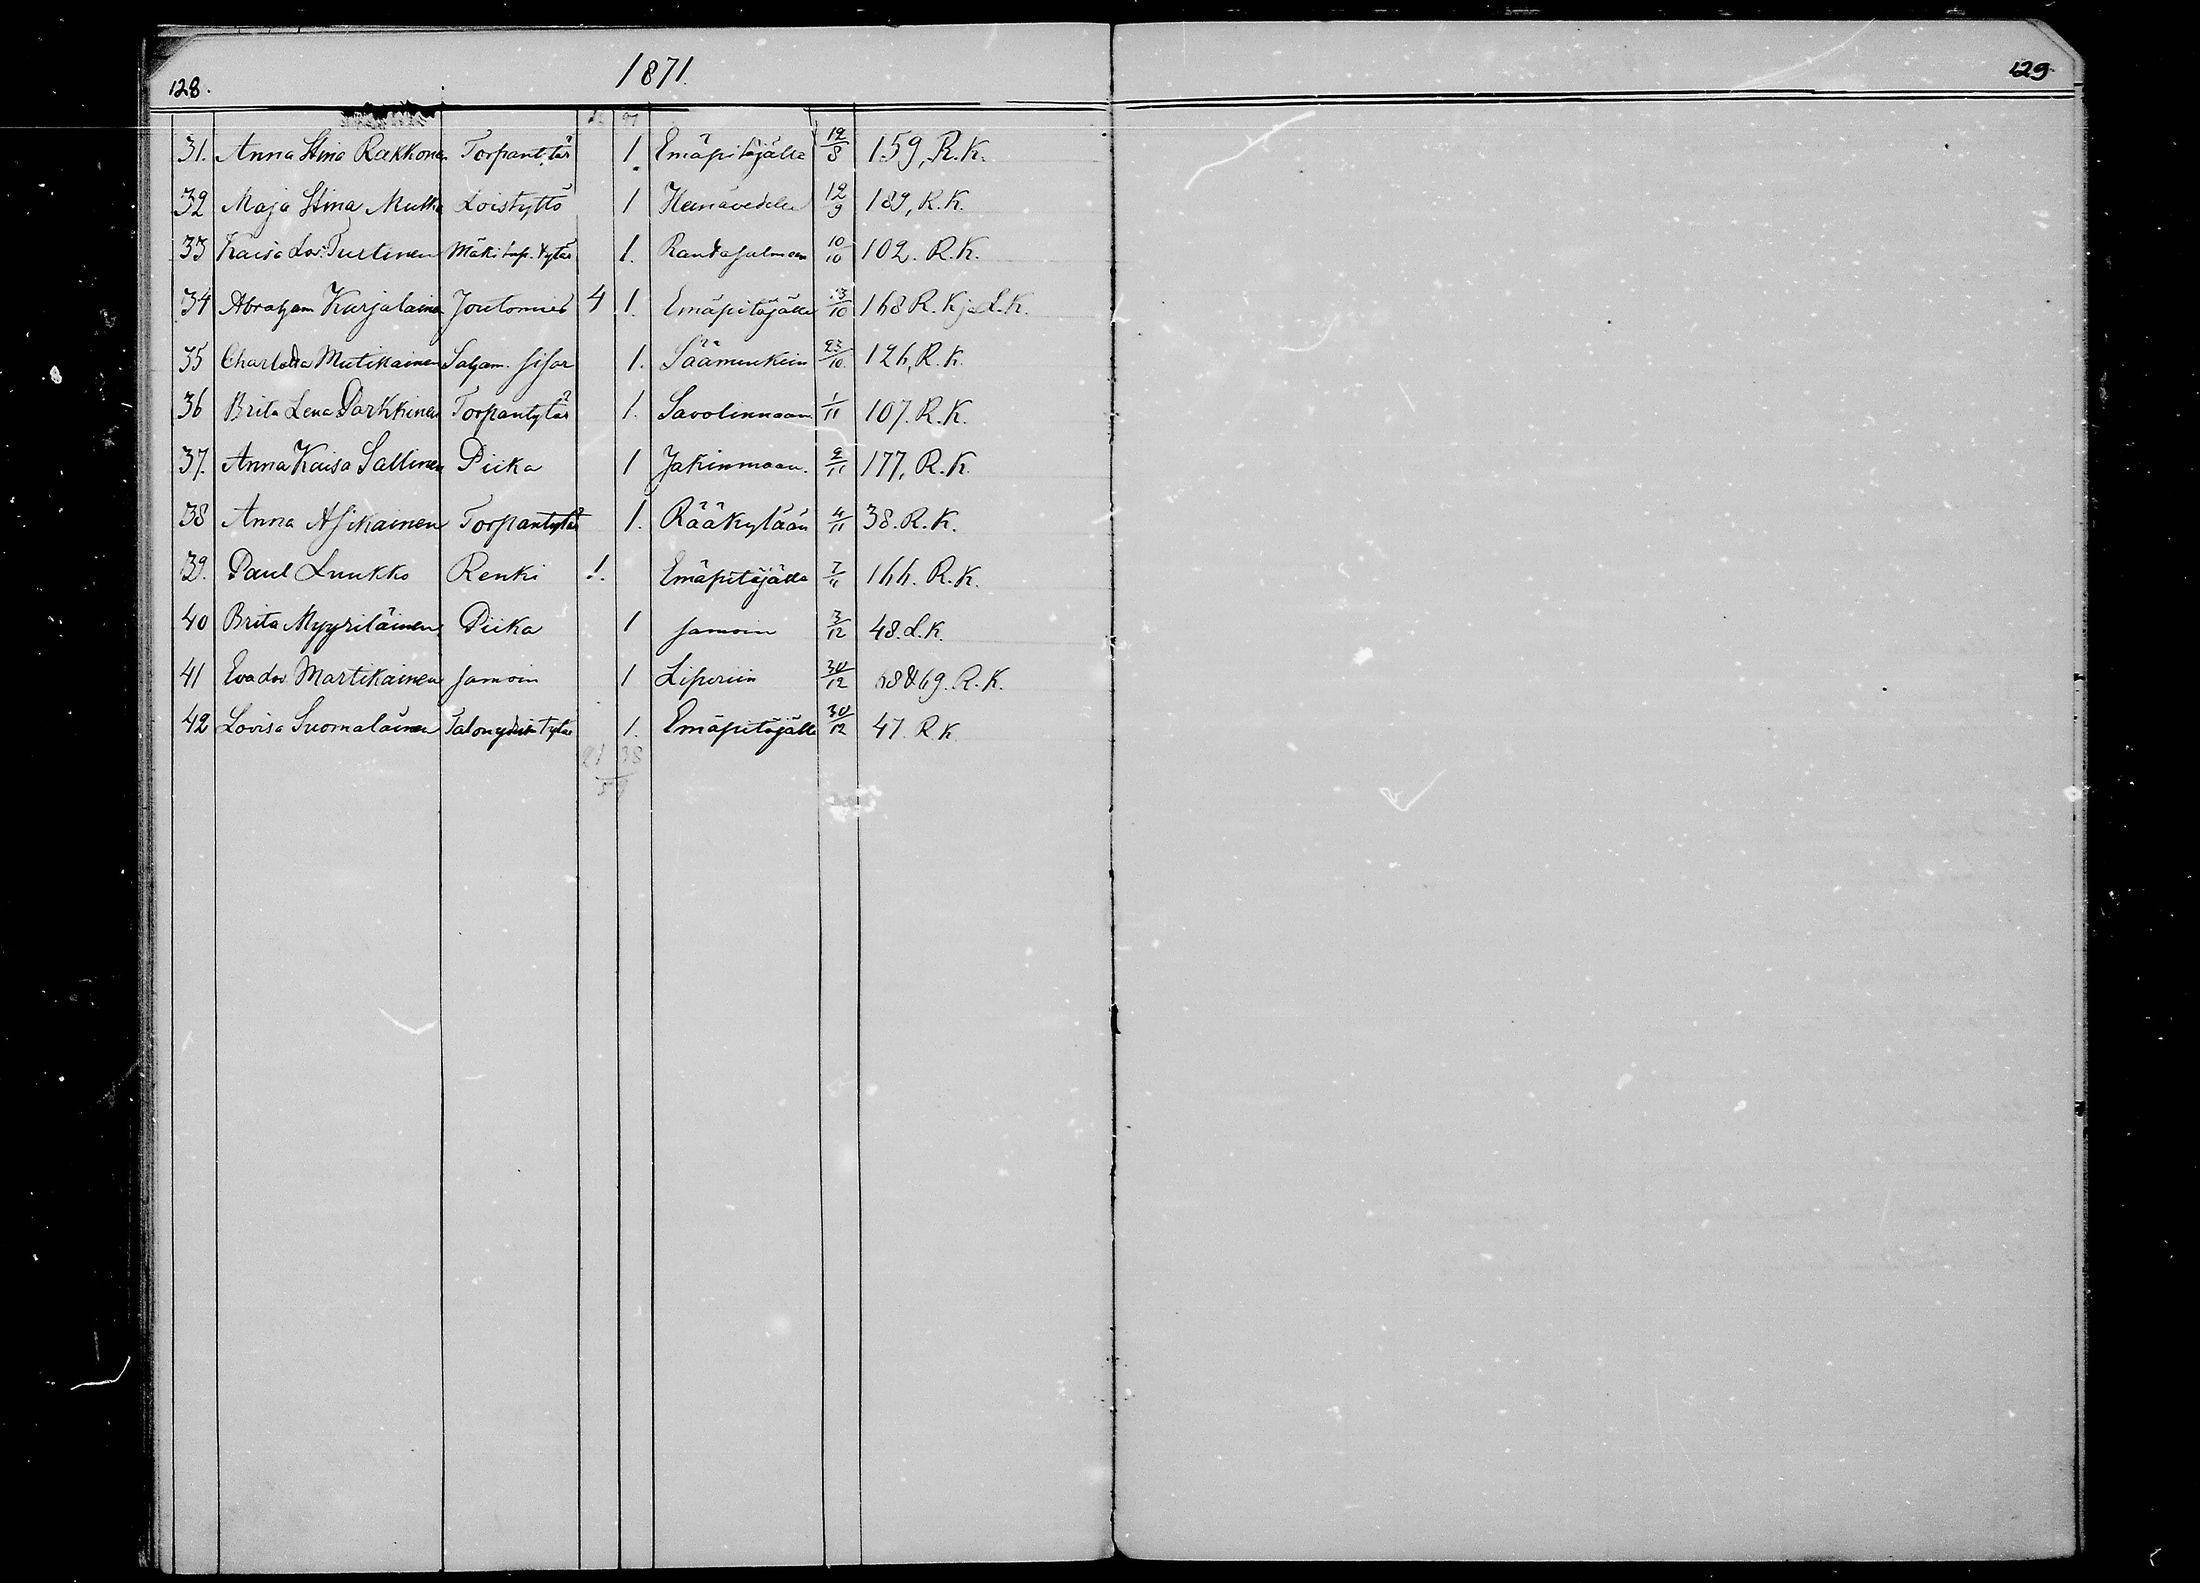 128.
1871.
129
31. Anna Stina Rakkonen Torpantytär 1. Emäpitäjälle 12/8 159, R.K.
32 Maja Stina Mutka Loistyttö 1 Heinävedelle 12/9 189, R.K.
33 Kaisa Lov. Turtinen Mäkitup. tytär 1. Randasalmeen 10/10 102. R.K.
34 Abraham Karjalainen Joutomies 4 1. Emäpitäjälle 13/10 168 R.K ja L.K.
35 Charlotta Mutikainen sisar 1. Sääminkiin 23/10. 126, R.K.
36 Brita Lena Parkkinen Torpantytär 1. Savolinnaan 1/11 107. R.K.
37. Anna Kaisa Sallinen Piika 1 Jakinmaan. 2/11 177, R.K.
38 Anna Asikainen Torpantytär 1. Rääkylään 4/11 38. R.K.
39. Paul Luukko Renki 1. Emäpitäjälle 7/11 166. R.K.
40 Brita Myyriläinen Piika 1 samoin 3/12 48. L.K.
41 Eva Lov. Martikainen samoin 1 Liperiin 30/12 68 & 69. R.K.
42 Lovisa Suomalainen tytär 1. Emäpitäjälle 30/12 47. R.K.
21 38
59